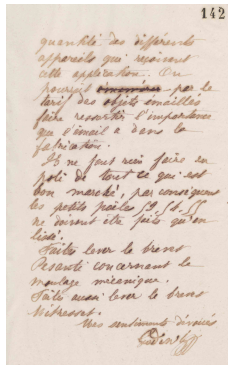 142
quantité des différents
appareils qui rejoignent
cette application. On
pourrait par le
tarif des objets émaillés
faire ressortir l'importance
que l'émail a dans la
fabrication.
Il ne faut rien faire en
poli de tout ce qui est
bon marché, par conséquent
les petits poêles
ne doivent être faits qu'en
lissé.
Faites lever le brevet
Pesanti concernant le
moulage mécanique.
Faites aussi lever le brevet
Mes sentiments dévoués
Godin